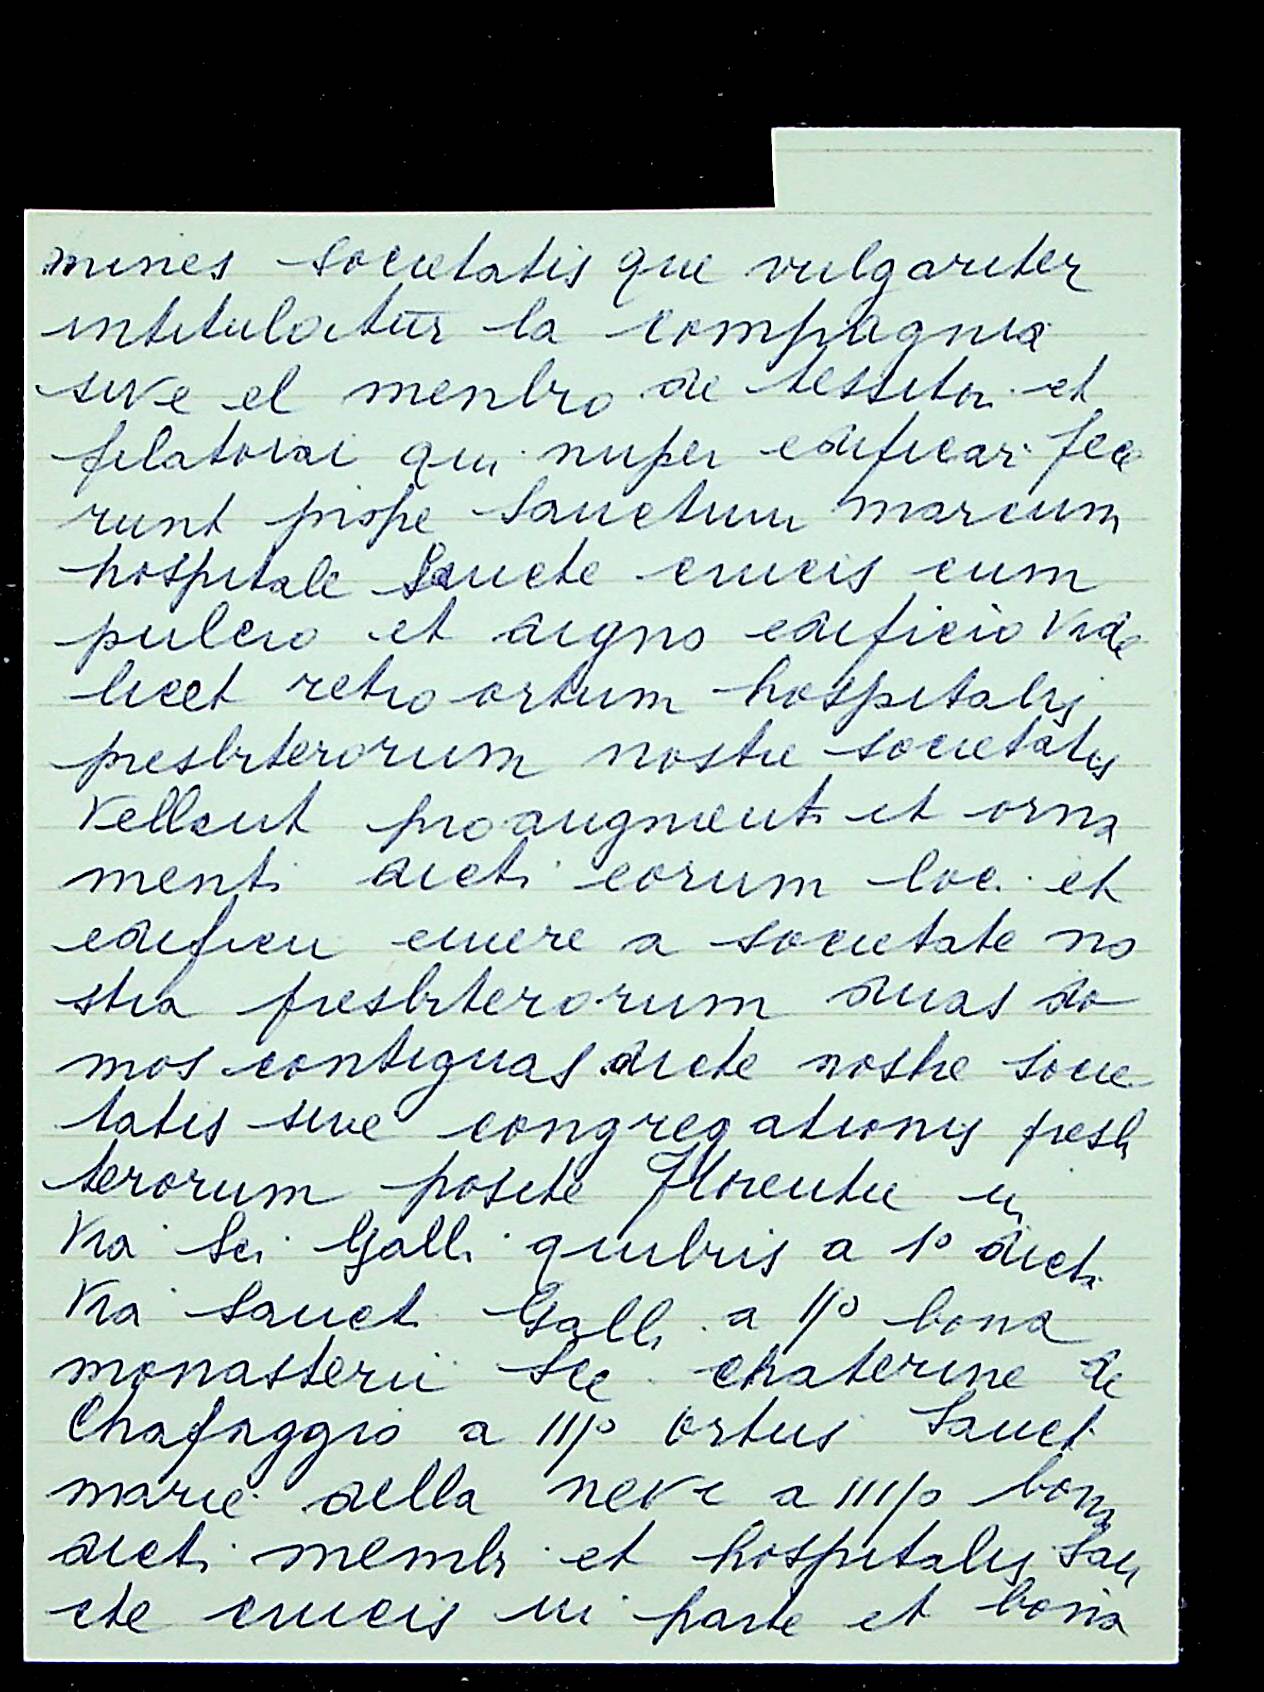 mines societatis que vulgariter
intitulatur la compagnia
sive el menbro de tessitori et
filatoiai qui nuper edificari fece
runt prope Sanctum marcum
hospitale Sancte crucis cum
pulcro et digno edificio vide
licet retro ortum hospitalis
presbiterorum nostre societatis
vellent pro augmenti et orna
menti dicti eorum loci et
edificii emere a societate no
stra presbiterorum duas do
mos contiguas dicte nostre socie
tatis sive congregationis presbi
terorum posite Florentie in
via Sci Galli quibus a 1º dicti
via Sancti Galli a IIº bona
monasterii Sce chaterine de
Chafaggio a IIIº ortus Sancte
marie della neve a IIIIº bona
dicti membri et hospitalis San
cte crucis in parte et bona